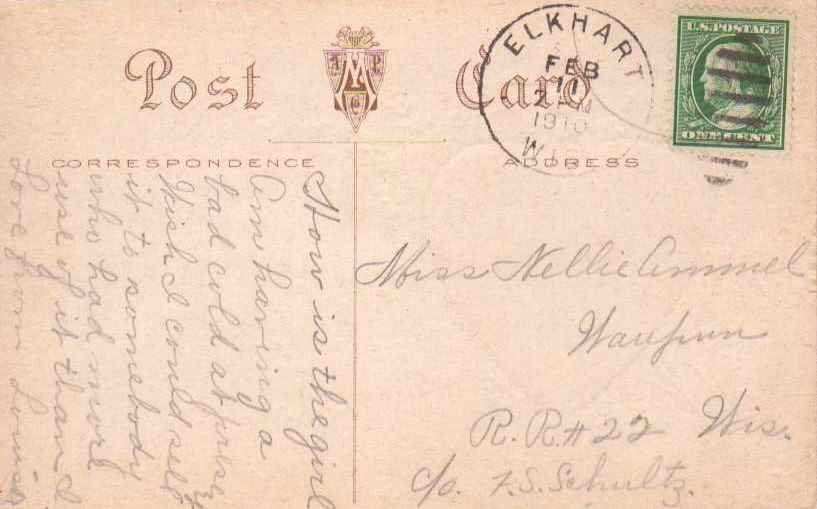 Post Card
A M P C
ELKHART
FEB
11
1910
WIS
U.S. POSTAGE
ONE CENT
CORRESPONDENCE
ADDRESS
How is the girl
Am having a
bad cold at present
Wish I could sell
it to somebody
who had more
use of it than I
Love from Louise
Miss Nellie Ammel
Waupun
R.R.#22 Wis.
c/o. F.S. Schultz.